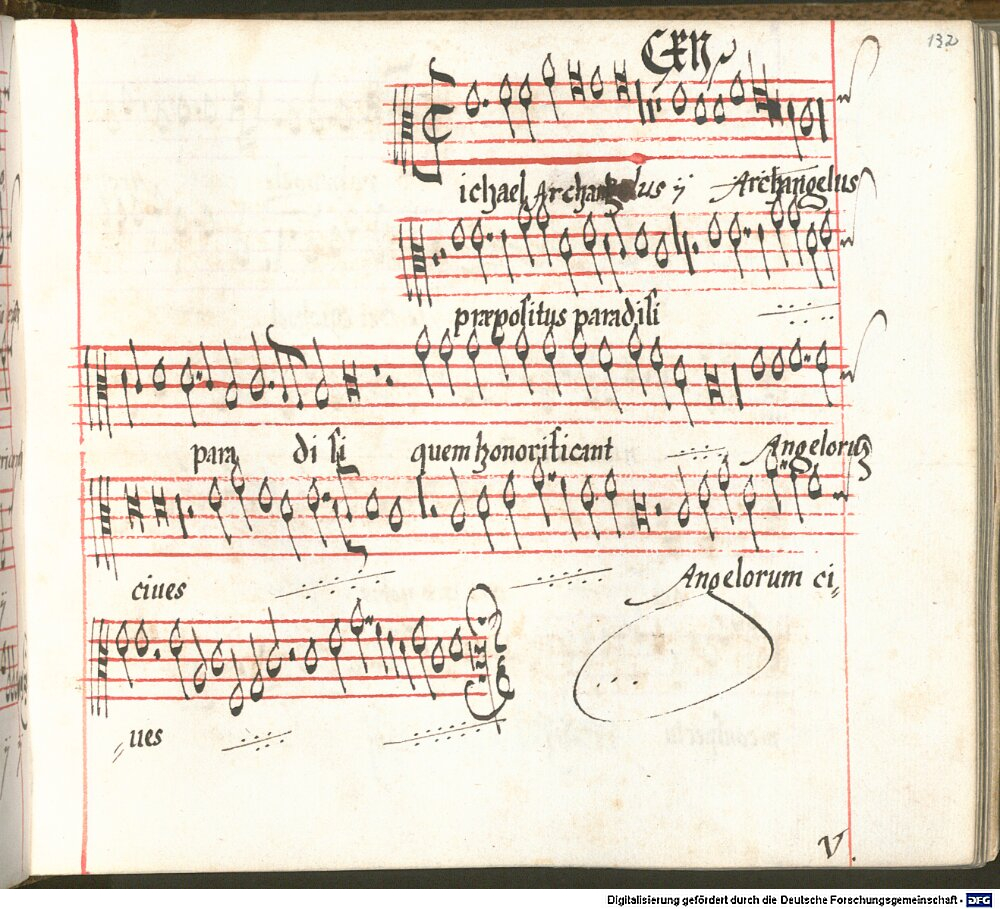 132
CXII
ichael Archangelus ij Archangelus
præpositus paradisi
para di si quem honorificant Angelorum
ciues Angelorum ci„
„ues
V.
Digitalisierung gefördert durch die Deutsche Forschungsgemeinschaft - DFG